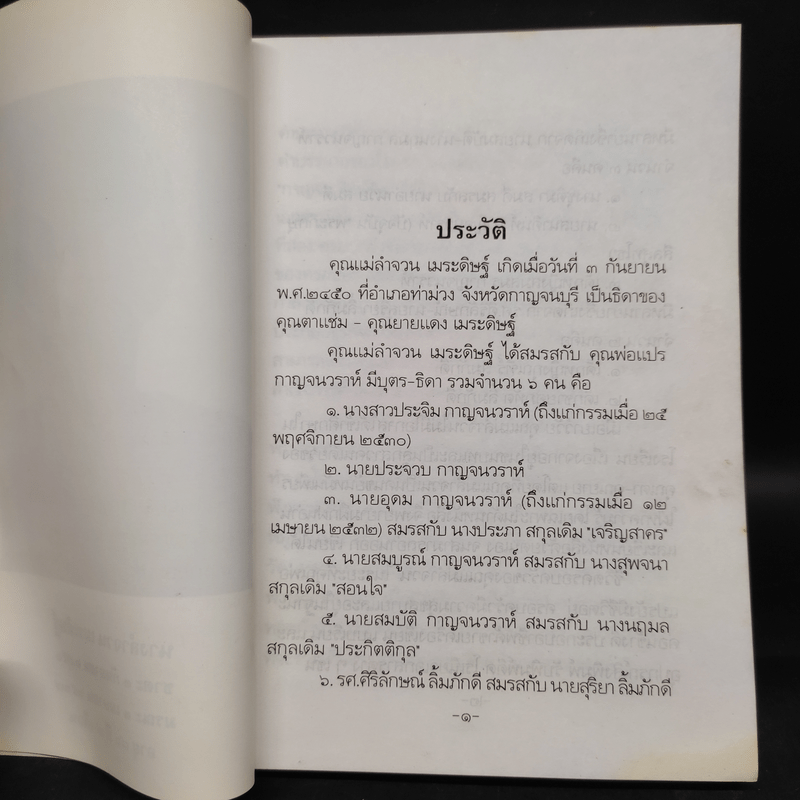 ประวัติ
คุณแม่ลำจวน เมระดิษฐ์ เกิดเมื่อวันที่ ๓ กันยายน
พ.ศ.๒๔๕๐ ที่อำเภอท่าม่วง จังหวัดกาญจนบุรี เป็นธิดาของ
คุณตาแช่ม - คุณยายแดง เมระดิษฐ์
คุณแม่ลำจวน เมระดิษฐ์ ได้สมรสกับ คุณพ่อแปร
กาญจนวราห์ มีบุตร-ธิดา รวมจำนวน ๖ คน คือ
๑. นางสาวประจิม กาญจนวราห์ (ถึงแก่กรรมเมื่อ ๒๕
พฤศจิกายน ๒๕๓๐)
๒. นายประจวบ กาญจนวราห์
๓. นายอุดม กาญจนวราห์ (ถึงแก่กรรมเมื่อ ๑๒
เมษายน ๒๕๓๒) สมรสกับ นางประภา สกุลเดิม "เจริญสาคร"
๔. นายสมบูรณ์ กาญจนวราห์ สมรสกับ นางสุพจนา
สกุลเดิม "สอนใจ"
๕. นายสมบัติ กาญจนวราห์ สมรสกับ นางนฤมล
สกุลเดิม "ประกิตติกุล"
๖. รศ.ศิริลักษณ์ ลิ้มภักดี สมรสกับ นายสุริยา ลิ้มภักดี
-๑-